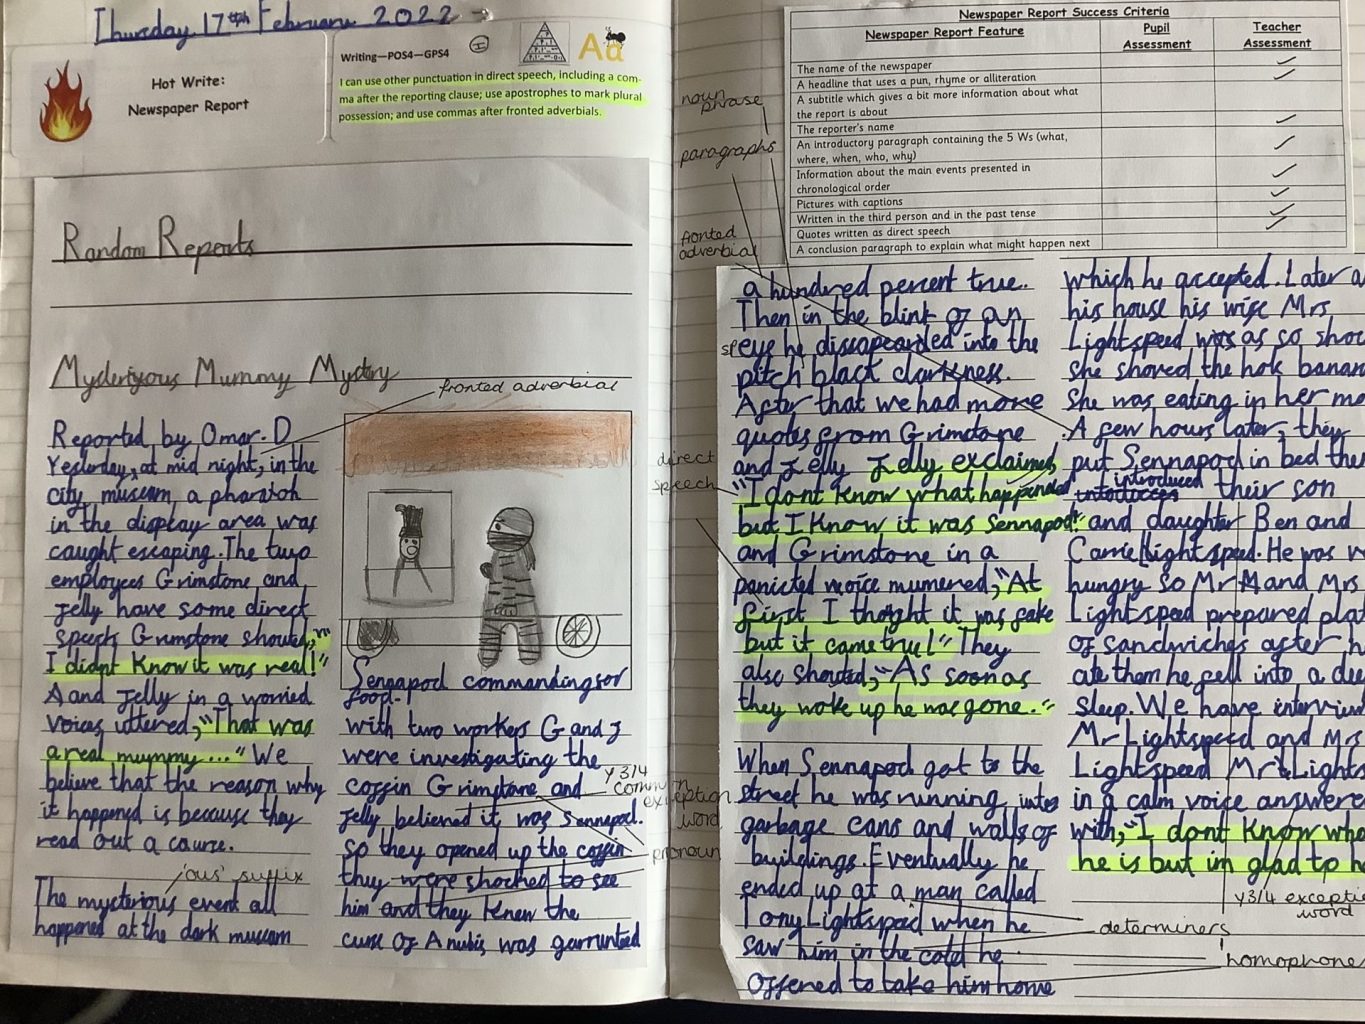 Thursday 17th February 2022
Hot Write:
Newspaper Report
Writing—POS4—GPS4
I
Aa
I can use other punctuation in direct speech, including a com-
ma after the reporting clause; use apostrophes to mark plural
possession; and use commas after fronted adverbials.
Random Reports
Mysteriyous Mummy Mystry
fronted adverbial
Reported by Omar. D
Yesterday, at mid night, in the
city museam, a pharaoh
in the display area was
caught escaping. The two
employees Grimstone and
Jelly have some direct
speech Grimstone shouted, "
I didnt Know it was real!"
A and Jelly in a worried
voices uttered, "That was
a real mummy..." We
believe that the reason why
it happened is because they
read out a course.
'ous' suffix
The mysterious event all
happened at the dark museam
Sennapod commanding for
food.
with two workers G and J
were investigating the
coffin Grimstone and
Jelly believed it was Sennapod.
so they opened up the coffin
they were shocked to see
him and they Knew the
curse of Anubis was garrunteed
Y3/4
common
exception
word
pronoun
Newspaper Report Success Criteria
Newspaper Report Feature
Pupil
Assessment
Teacher
Assessment
The name of the newspaper
A headline that uses a pun, rhyme or alliteration
A subtitle which gives a bit more information about what
the report is about
The reporter's name
An introductory paragraph containing the 5 Ws (what,
where, when, who, why)
Information about the main events presented in
chronological order
Pictures with captions
Written in the third person and in the past tense
Quotes written as direct speech
A conclusion paragraph to explain what might happen next
noun
phrase
paragraphs
fronted
adverbial
direct
speech
sp
a hundred percent true.
Then in the blink of an
eye he dissapearded into the
pitch black darkness.
After that we had more
quotes from Grimstone
and Jelly Jelly exclaimed,
"I dont Know what happened
but I Know it was Sennapod!"
and Grimstone in a
panicked voice mumered, "At
first I thoght it was fake
but it came true!" They
also shouted, "As soon as
they woke up he was gone."
When Sennapod got to the
street he was running into
garbage cans and walls of
buildings. Eventually he
ended up at a man called
Tony Lightspeed when he
saw him in the cold he
offened to take him home
which he accepted. Later a
his house his wife Mrs
Lightspeed was as so shoc
she shoved the hok banan
she was eating in her mo
A few hours later, they
put Sennapod in bed the
introduced their son
and daughter Ben and
Carrie Lightspeed. He was v
hungry so Mr M and Mrs
Lightspeed prepared pla
of sandwiches after h
ate them he fell into a dee
sleep. We have interview
Mr Lightspeed and Mrs
Lightspeed Mr Lights
in a calm voice answere
with, "I dont Know who
he is but im glad to h
Y3/4 excepti
word
determiners
homophone